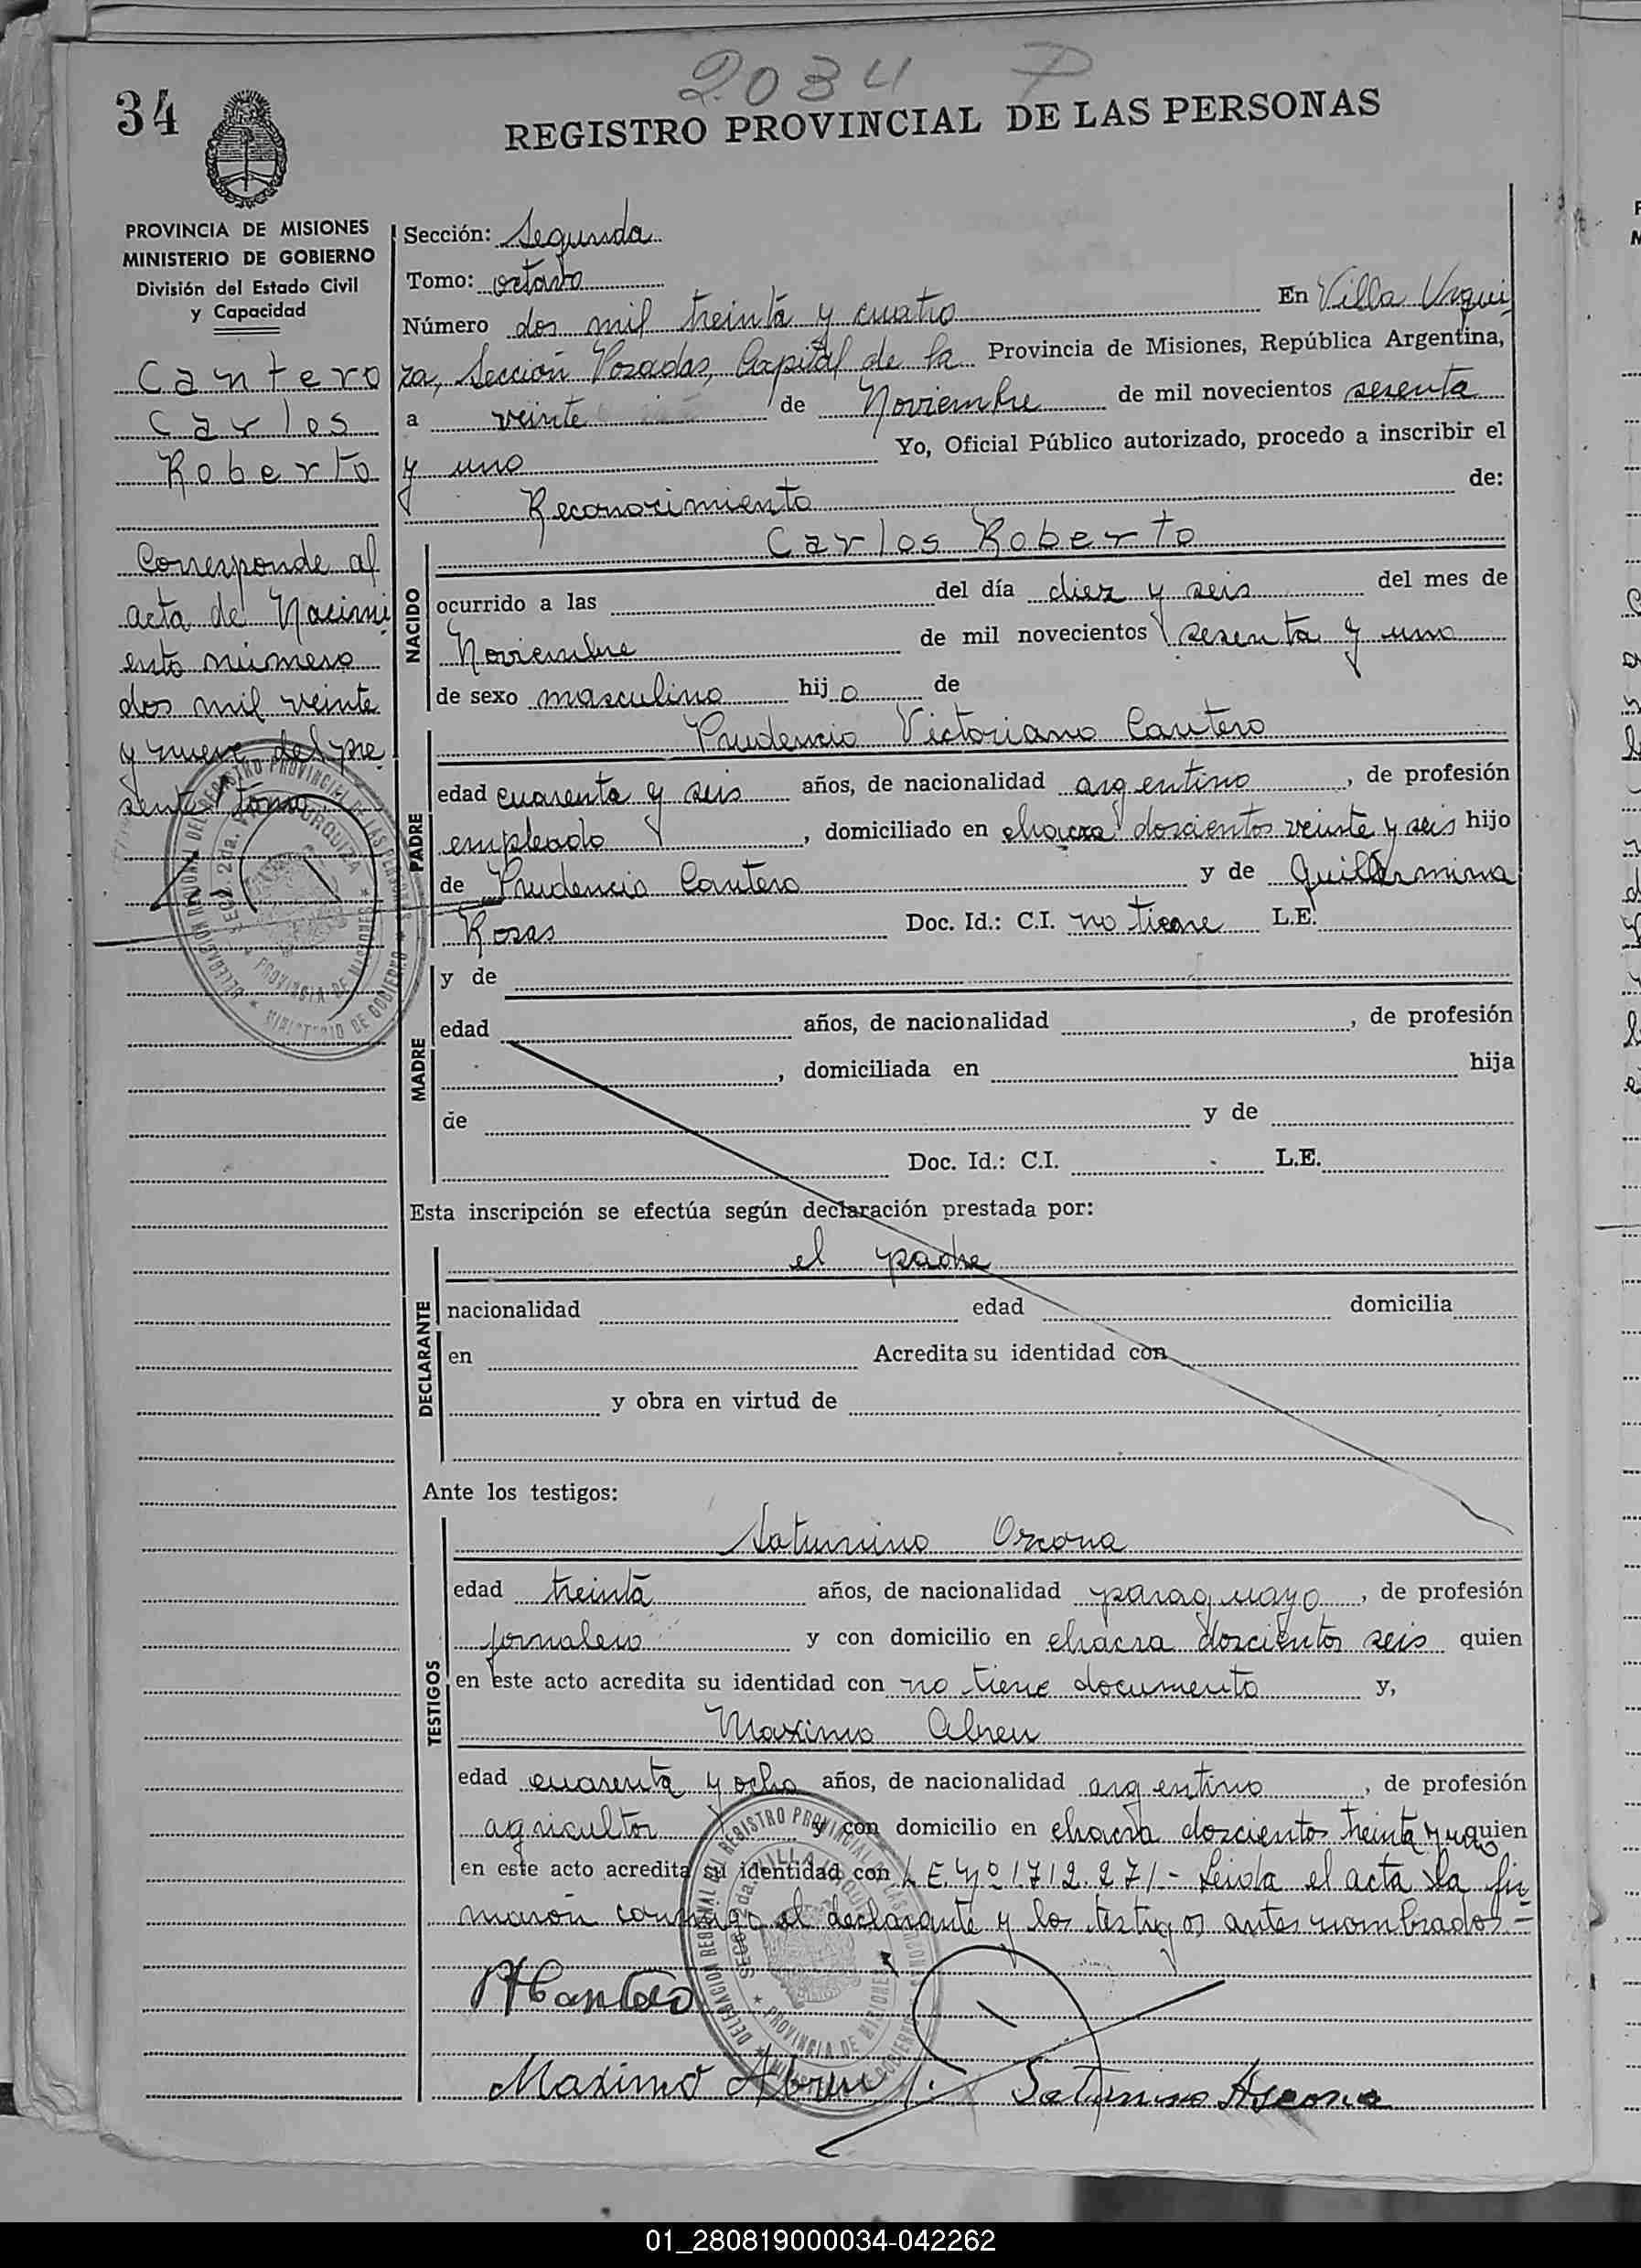 2034 P
34
REGISTRO PROVINCIAL DE LAS PERSONAS
PROVINCIA DE MISIONES
MINISTERIO DE GOBIERNO
División del Estado Civil
y Capacidad
Cantero
Carlos
Roberto
Corresponde al
acta de Nacimi
ento número
dos mil veinte
y nueve del pre
sente tomo
Sección: Segunda
Tomo: octavo
Número dos mil treinta y cuatro En Villa Urqui
za, Sección Posadas, Capital de la Provincia de Misiones, República Argentina,
a veinte de Noviembre de mil novecientos sesenta
y uno Yo, Oficial Público autorizado, procedo a inscribir el
Reconocimiento de:
NACIDO
Carlos Roberto
ocurrido a las del día diez y seis del mes de
Noviembre de mil novecientos sesenta y uno
de sexo masculino hijo de
PADRE
Prudencio Victoriano Cantero
edad cuarenta y seis años, de nacionalidad argentino, de profesión
empleado, domiciliado en chacra doscientos veinte y seis hijo
de Prudencio Cantero y de Guillermina
Rosas Doc. Id.: C.I. no tiene L.E.
MADRE
y de
edad años, de nacionalidad , de profesión
, domiciliada en hija
de y de
Doc. Id.: C.I. L.E.
Esta inscripción se efectúa según declaración prestada por:
DECLARANTE
el padre
nacionalidad edad domicilia
en Acredita su identidad con
y obra en virtud de
Ante los testigos:
TESTIGOS
Saturnino Orcona
edad treinta años, de nacionalidad paraguayo, de profesión
jornalero y con domicilio en chacra doscientos seis quien
en este acto acredita su identidad con no tiene documento y,
Maximo Abreu
edad cuarenta y ocho años, de nacionalidad argentino, de profesión
agricultor y con domicilio en chacra doscientos treinta y uno quien
en este acto acredita su identidad con L.E. Nº 1.712.271 - Leida el acta la fir
maron conmigo el declarante y los testigos antes nombrados =
DELEGACION REGIONAL DEL REGISTRO PROVINCIAL DE LAS PERSONAS
SECC 2da. VILLA URQUIZA
PROVINCIA DE MISIONES
MINISTERIO DE GOBIERNO
PVCantero
Maximo Abreu
Saturnino Ascona
01_280819000034-042262